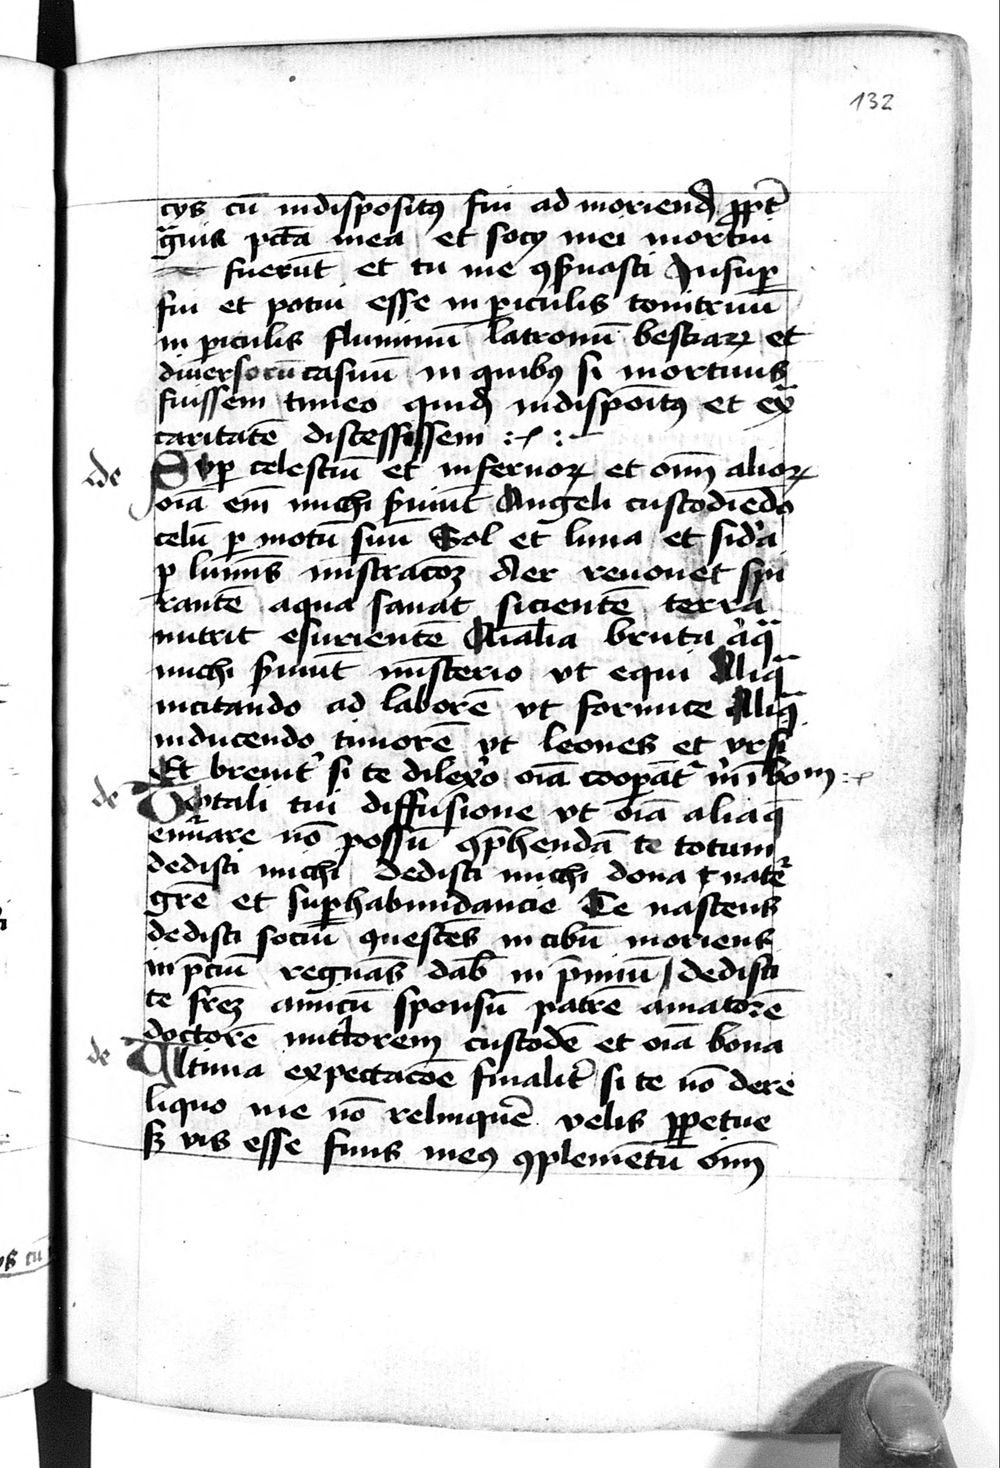 132
cys cū indispositꝯ fui ad moriend ꝓpt̄
gͣuia pctā mea et socij mei mortui
fuerūt et tu me ꝯẜuasti Insuꝑ
fui et potui esse in ꝑiculis tonitruū
in ꝑiculis fluminū latronū bestiaꝝ et
diuersorū casuū in quibꝯ si mortuus
fuissem timeo quid indispoītꝯ et exͣ
caritatē discessissem :~:~
de Suꝑ celestiū et infernoꝝ et oīm alioꝝ
oīa eīm michi ẜuiūt Angeli custodiēdo
celū ꝑ motū suū Sol et luna et sid'a
ꝑ lumīs mīstracōꝫ Aer renouet spi
rantē aqua sanat sicientē terra
nutrit esurientē Aīalia bruta aͥqͣ
michi ẜuiūt mīsterio vt equi Aliqͣ
incitando ad laborē vt formice Aliqͣ
inducendo timorē vt leones et vrsi
Et breuit' si te dilex'o oīa cooꝑāt' m̄ ī bonū :~
de Totali tui diffusione vt oīa aliaqꝫ
enūare nō possū ꝯp̄hendā te totum
dedisti michi dedisti michi dona t nat'e
gr̄e et suꝑhabundancie Te nascens
dedisti sociū quescēs in cibū moriens
in p̄ciū regnās dab in p̄miū / dedisti
te fr̄eꝫ amicū sponsū patrē amatorē
doctorē nut'torem custodē et oīa bona
de Ultima expectacōe finalit' si te nō dere
liquo me nō relinquē velis ꝑpetue
sꝫ vis esse finis meꝯ ꝯplementū oīm